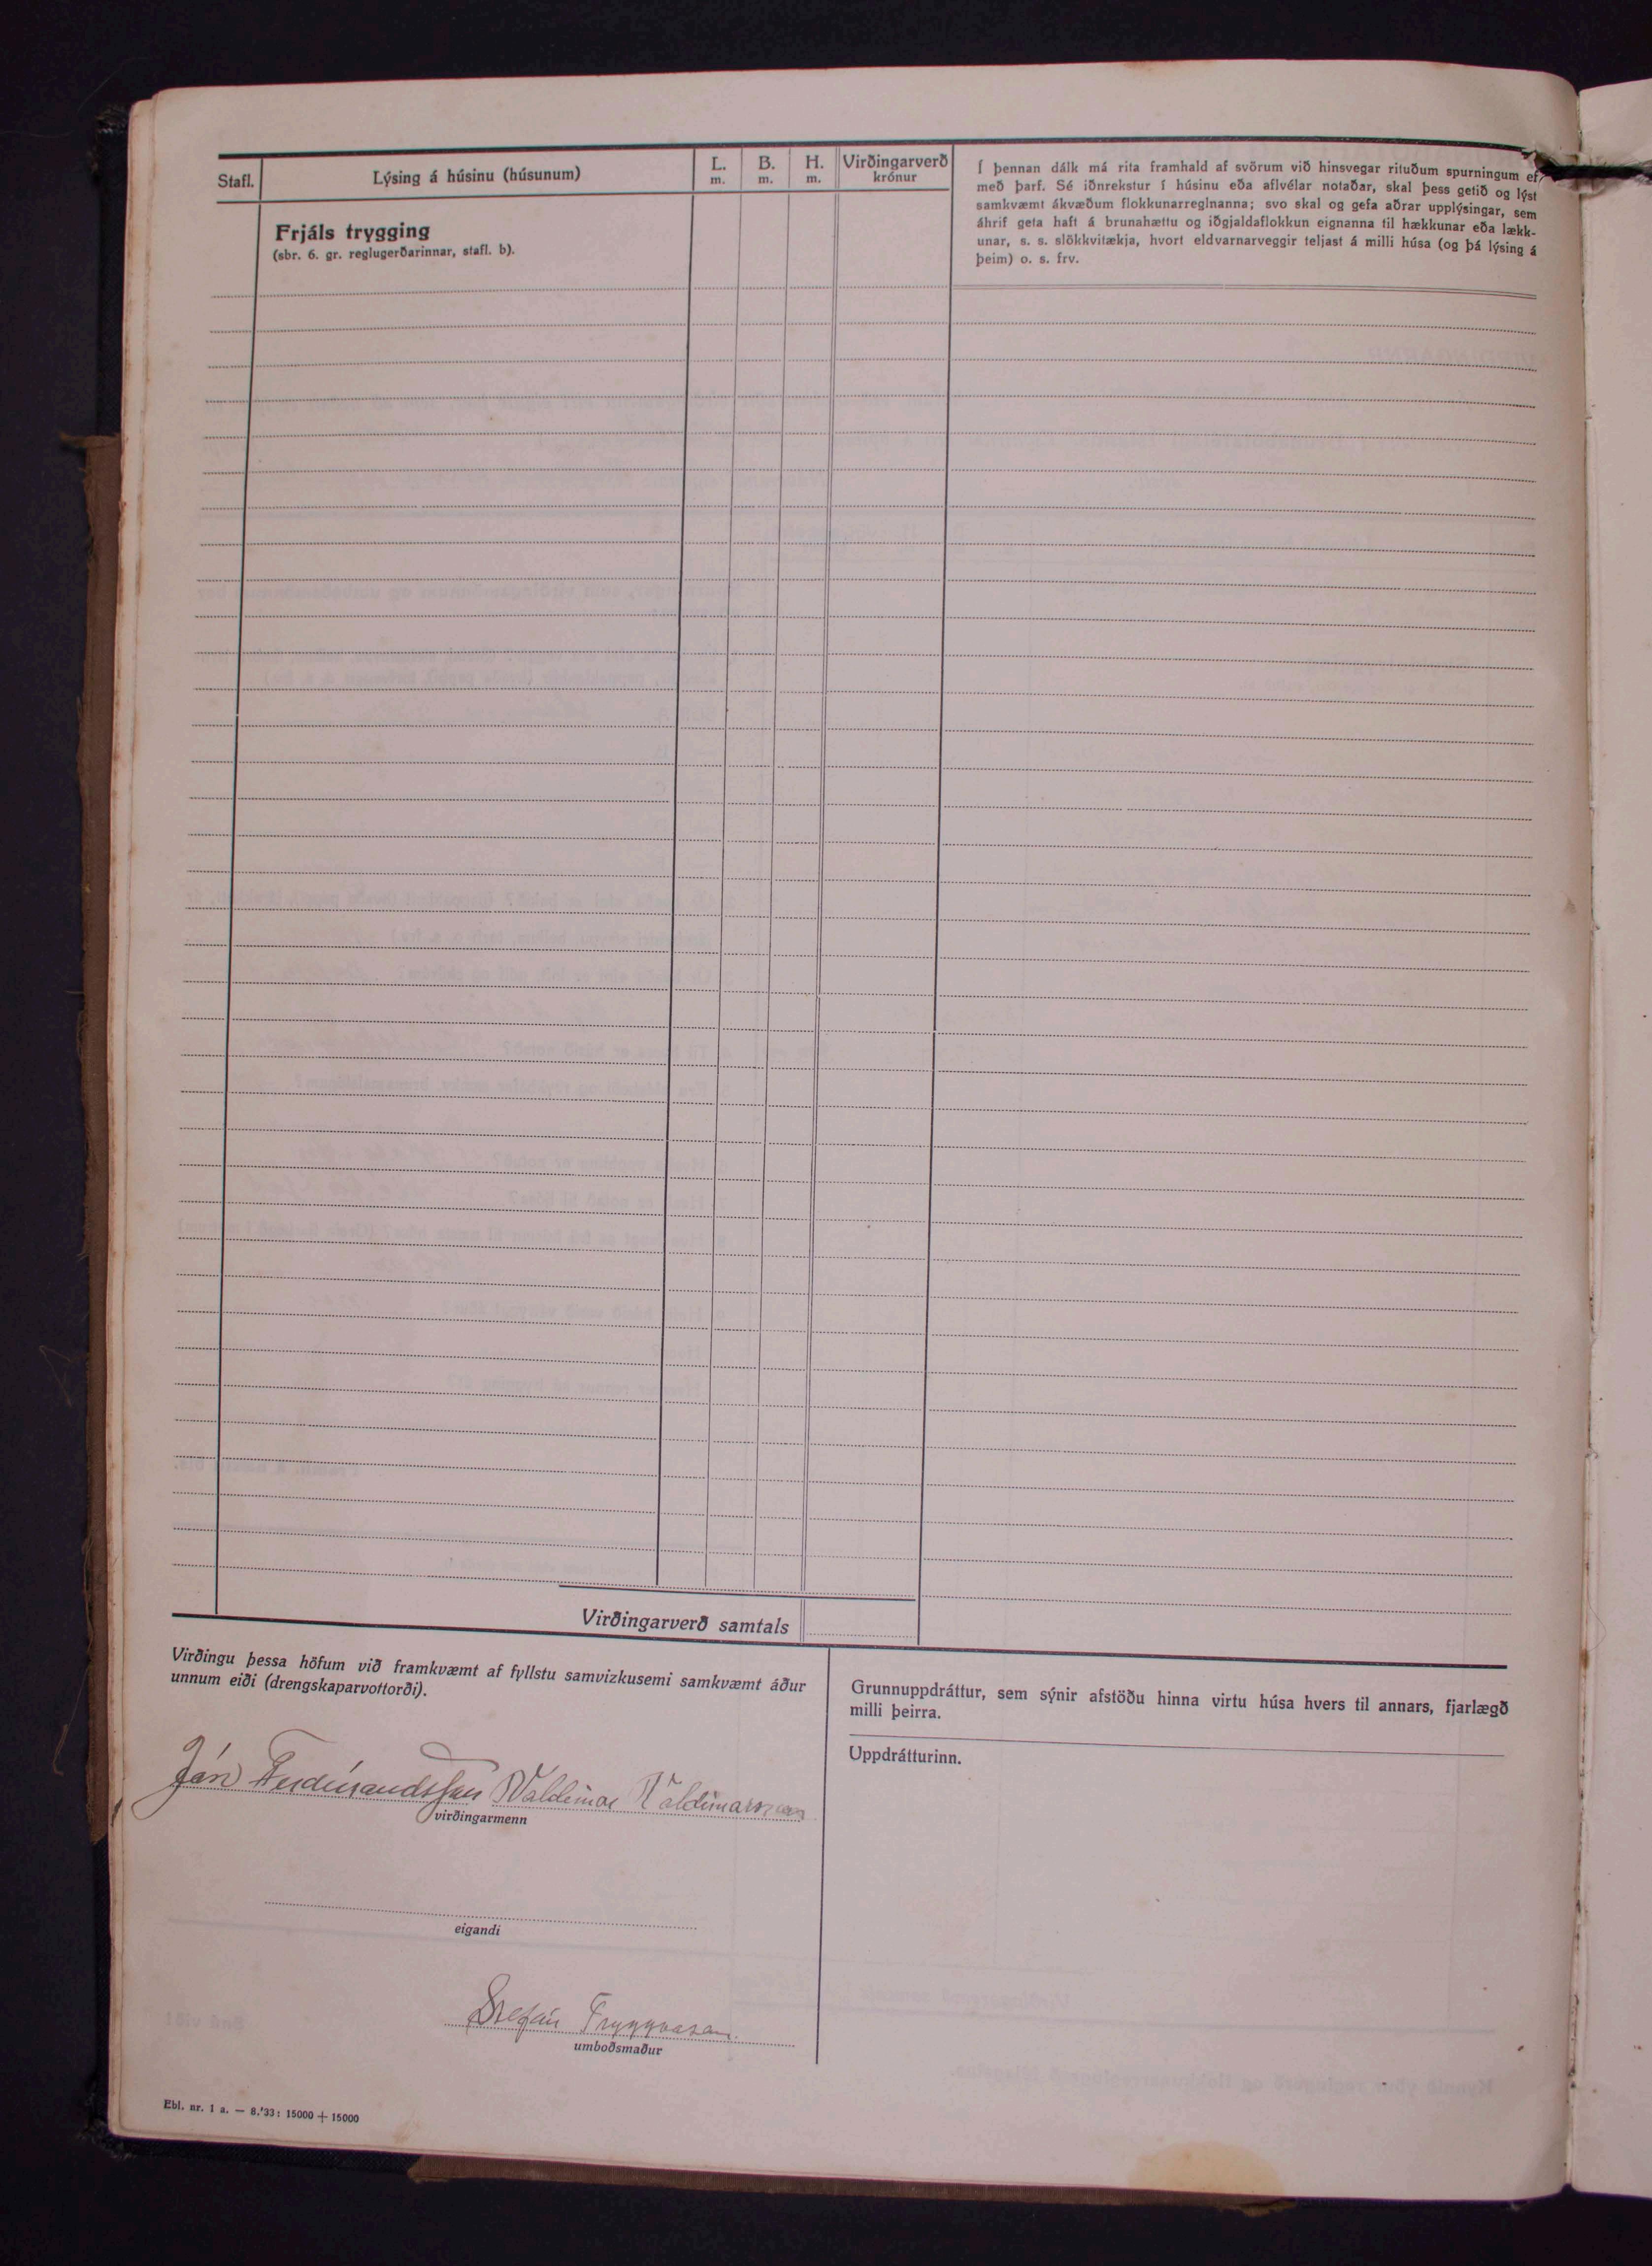 Stafl.
Lýsing á húsinu (húsunum)
L.
m.
B.
m.
H.
m.
Virðingarverð
krónur
Frjáls trygging
(sbr. 6. gr. reglugerðarinnar, stafl. b).
Í þennan dálk má rita framhald af svörum við hinsvegar rituðum spurningum ef
með þarf. Sé iðnrekstur í húsinu eða aflvélar notaðar, skal þess getið og lýst
samkvæmt ákvæðum flokkunarreglnanna; svo skal og gefa aðrar upplýsingar, sem
áhrif geta haft á brunahættu og iðgjaldaflokkun eignanna til hækkunar eða lækk-
unar, s. s. slökkvitækja, hvort eldvarnarveggir teljast á milli húsa (og þá lýsing á
þeim) o. s. frv.
Virðingarverð samtals
Virðingu þessa höfum við framkvæmt af fyllstu samvizkusemi samkvæmt áður
unnum eiði (drengskaparvottorði).
Jón Ferdinandsson Valdimar Valdimarsson
virðingarmenn
eigandi
Stefán Tryggvason.
umboðsmaður
Grunnuppdráttur, sem sýnir afstöðu hinna virtu húsa hvers til annars, fjarlægð
milli þeirra.
Uppdrátturinn.
Ebl. nr. 1 a. — 8.'33: 15000 + 15000